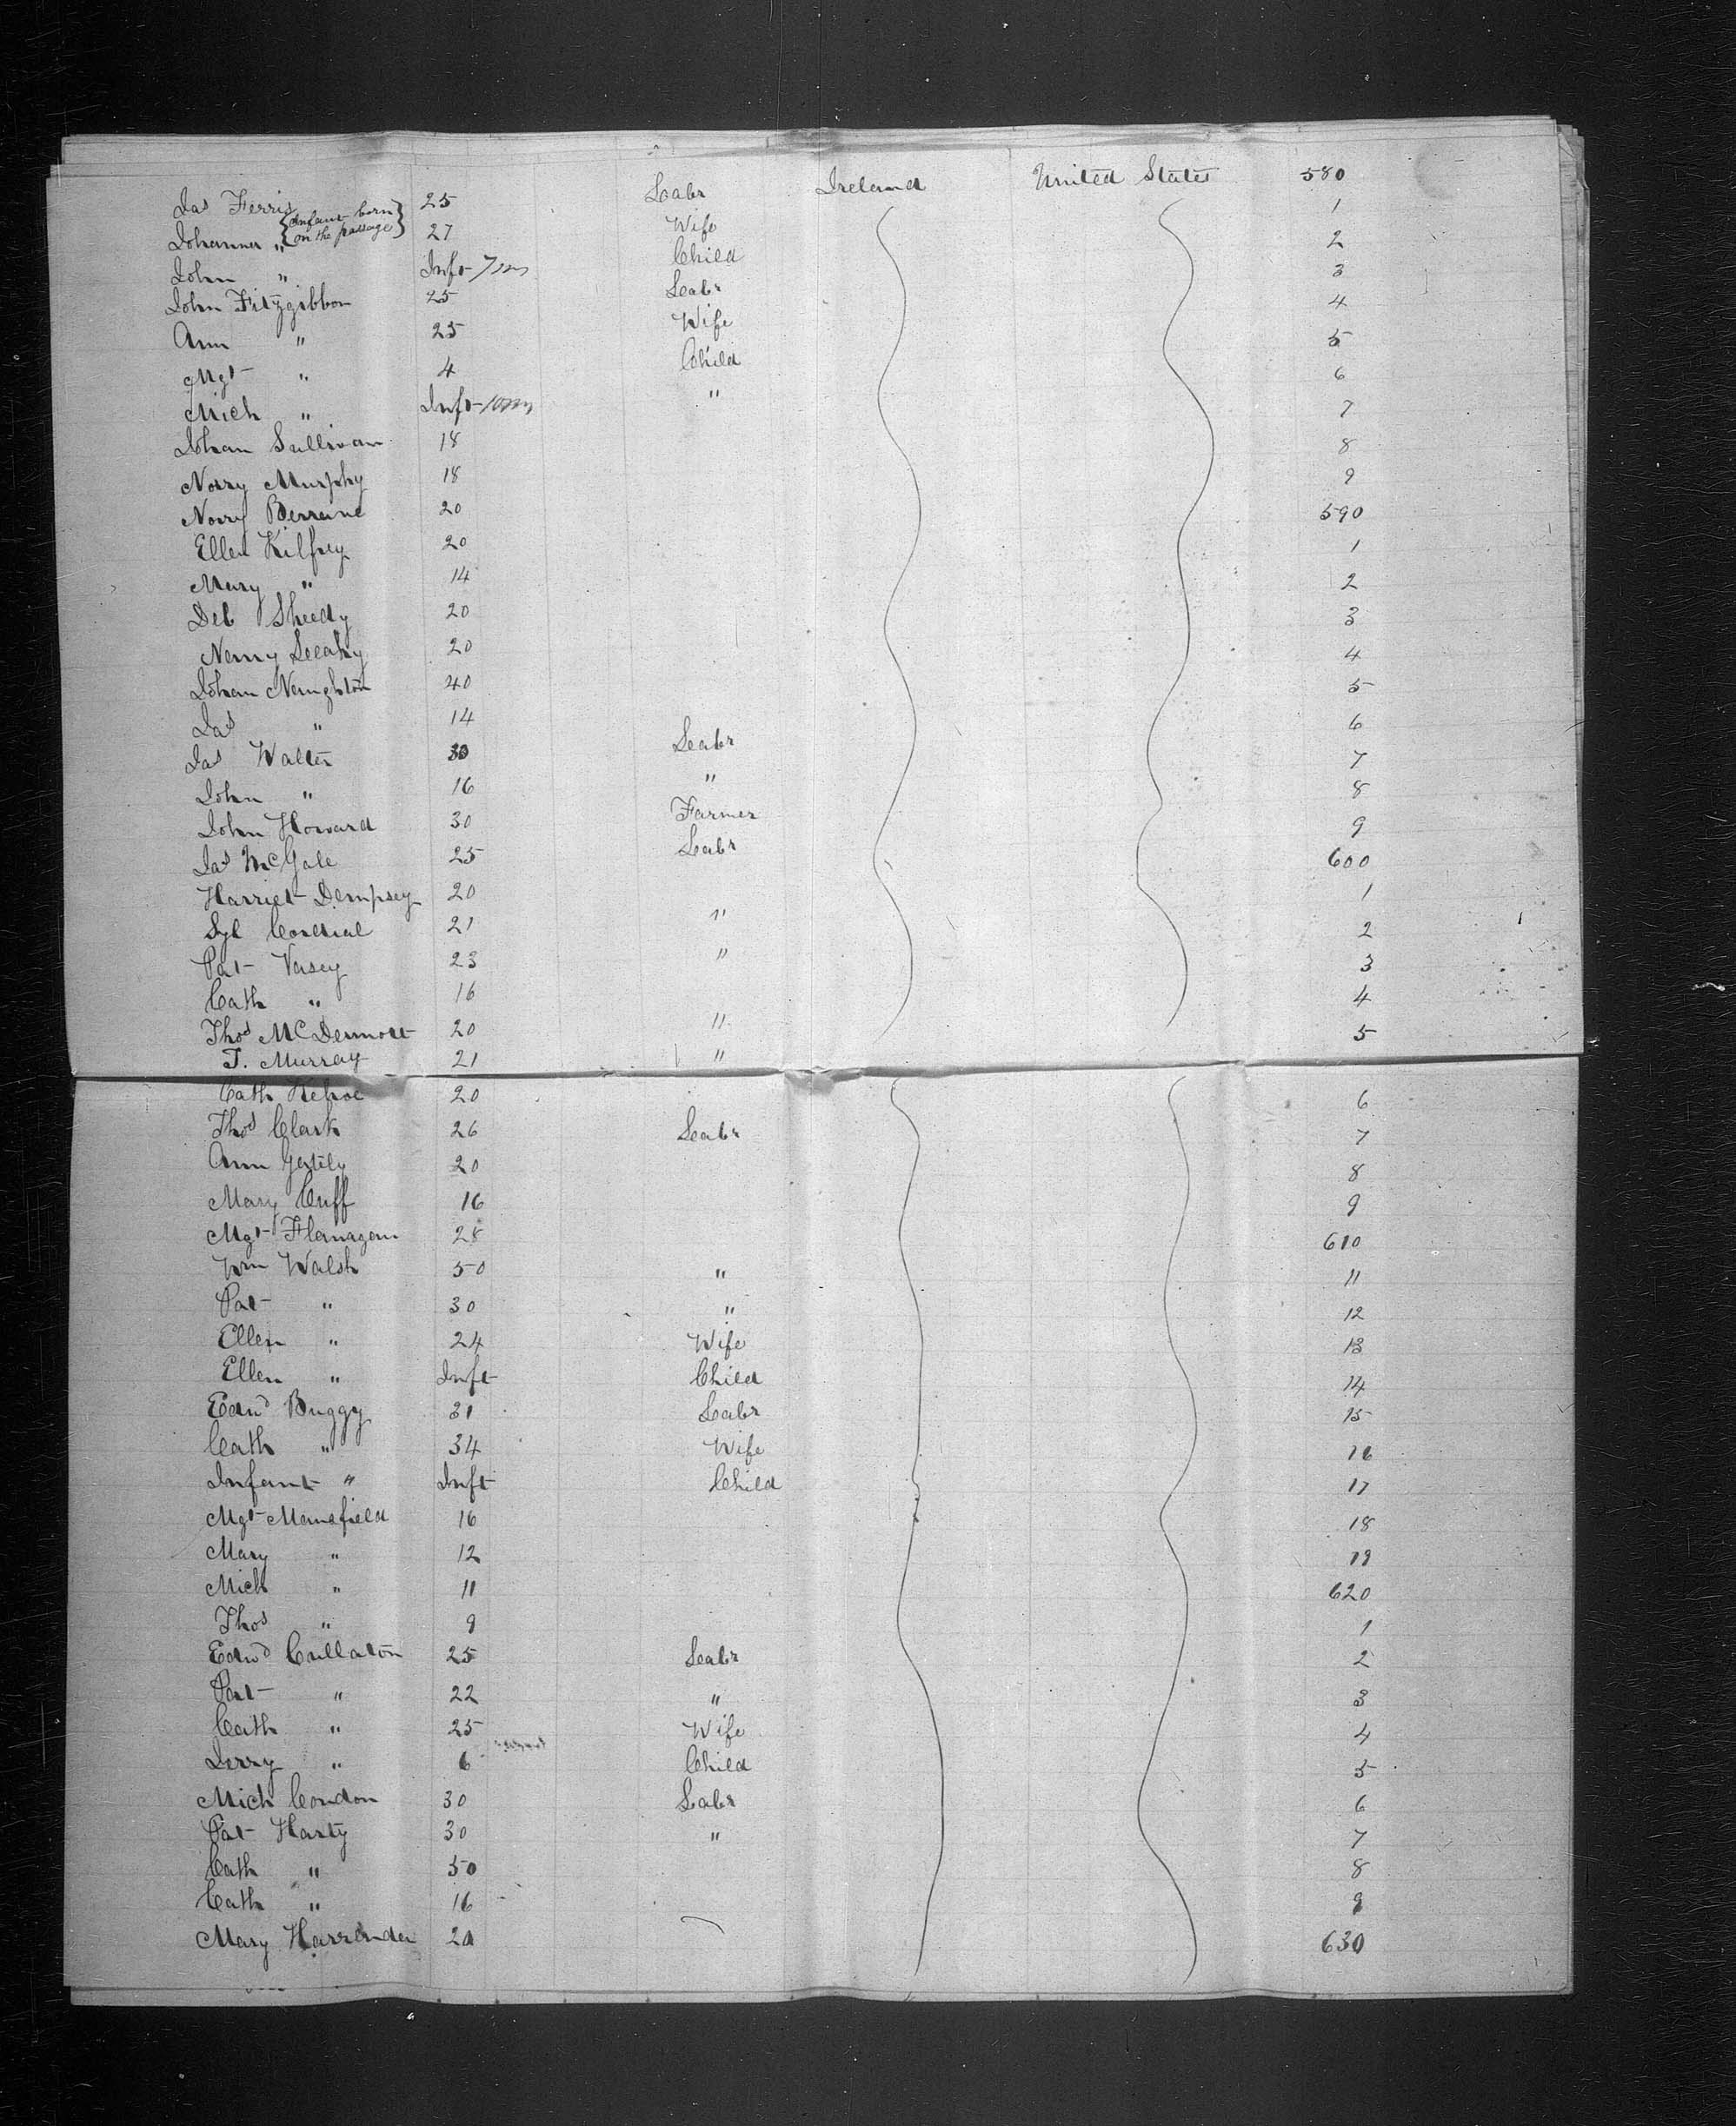 Jas Ferris 25 Labr Ireland United States 580
Johanna " {Infant born on the passage} 27 Wife 1
John " Inft 7m Child 2
John Fitzgibbon 25 Labr 3
Ann " 25 Wife 4
Mgt " 4 Child 5
Mich " Inft 10m " 6
Johan Sullivan 18 7
Norry Murphy 18 8
Norry 20 9
Ellen 20 590
Mary " 14 1
Deb Sheedy 20 2
Leahy 20 3
Johan Naughton 40 4
Jas " 14 5
Jas Walter 30 Labr 6
John " 16 " 7
John Howard 30 Farmer 8
Jas McGale 25 Labr 9
Harriet Dempsey 20 600
Syl 21 " 1
Pat Vasey 23 " 2
Cath " 16 3
Thos McDermott 20 " 4
T. Murray 21 " 5
Cath Kehoe 20 6
Thos Clark 26 Labr 7
Ann 20 8
Mary Cuff 16 9
Mgt Flanagan 28 610
Wm Walsh 50 " 11
Pat " 30 " 12
Ellen " 24 Wife 13
Ellen " Inft Child 14
Edwd Buggy 31 Labr 15
Cath " 34 Wife 16
Infant " Inft Child 17
Mgt Mansfield 16 18
Mary " 12 19
Mich " 11 620
Thos " 9 1
Edwd Cullaton 25 Labr 2
Pat " 22 " 3
Cath " 25 Wife 4
Jerry " 6 Child 5
Mich Condon 30 Labr 6
Pat Harty 30 " 7
Cath " 50 8
Cath " 16 9
Mary 20 630